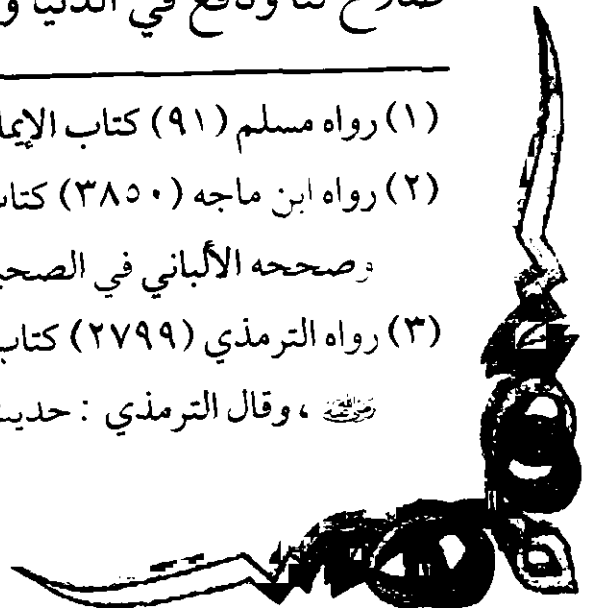 صلاح لنا ودافع في الدنيا و
(١) رواه مسلم (٩١) كتاب الإيما
(٢) رواه ابن ماجه (٣٨٥٠) كتاب
وصححه الألباني في الصحي
(٣) رواه الترمذي (٢٧٩٩) كتاب
رضي الله عنه ، وقال الترمذي : حديث